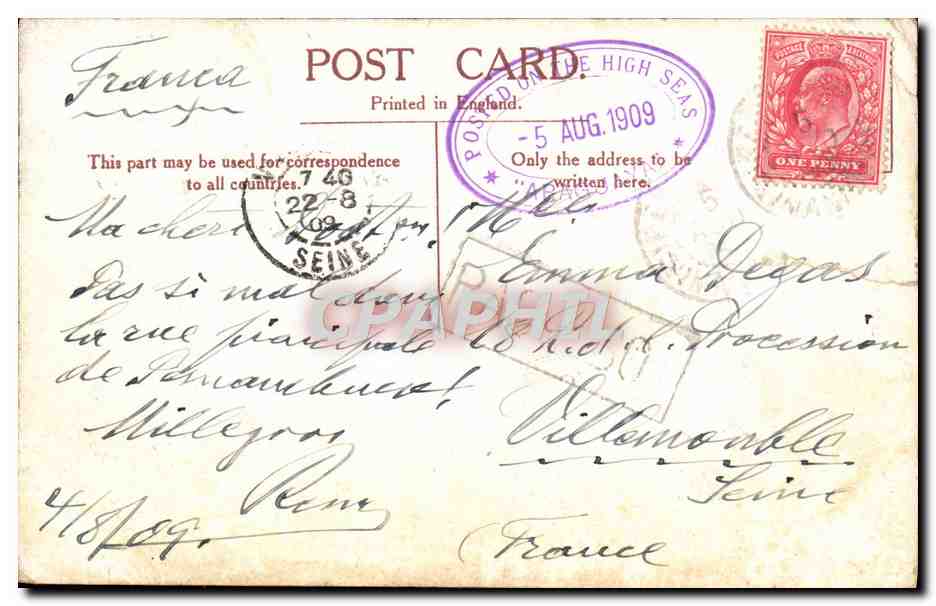 Franca
POST CARD.
Printed in England.
POSTED ON THE HIGH SEAS
- 5 AUG. 1909
POSTAGE REVENUE
ONE PENNY
This part may be used for correspondence
to all countries.
Only the address to be
written here.
7 40
22 - 8
09
SEINE
Ma chère
Pas si mal dans
la rue principale
de Pernambuco!
Mille
4/8/09.
Mlle
Emma Degas
18 r. d. l. Procession
Villemomble
Seine
France
CPAPHIL